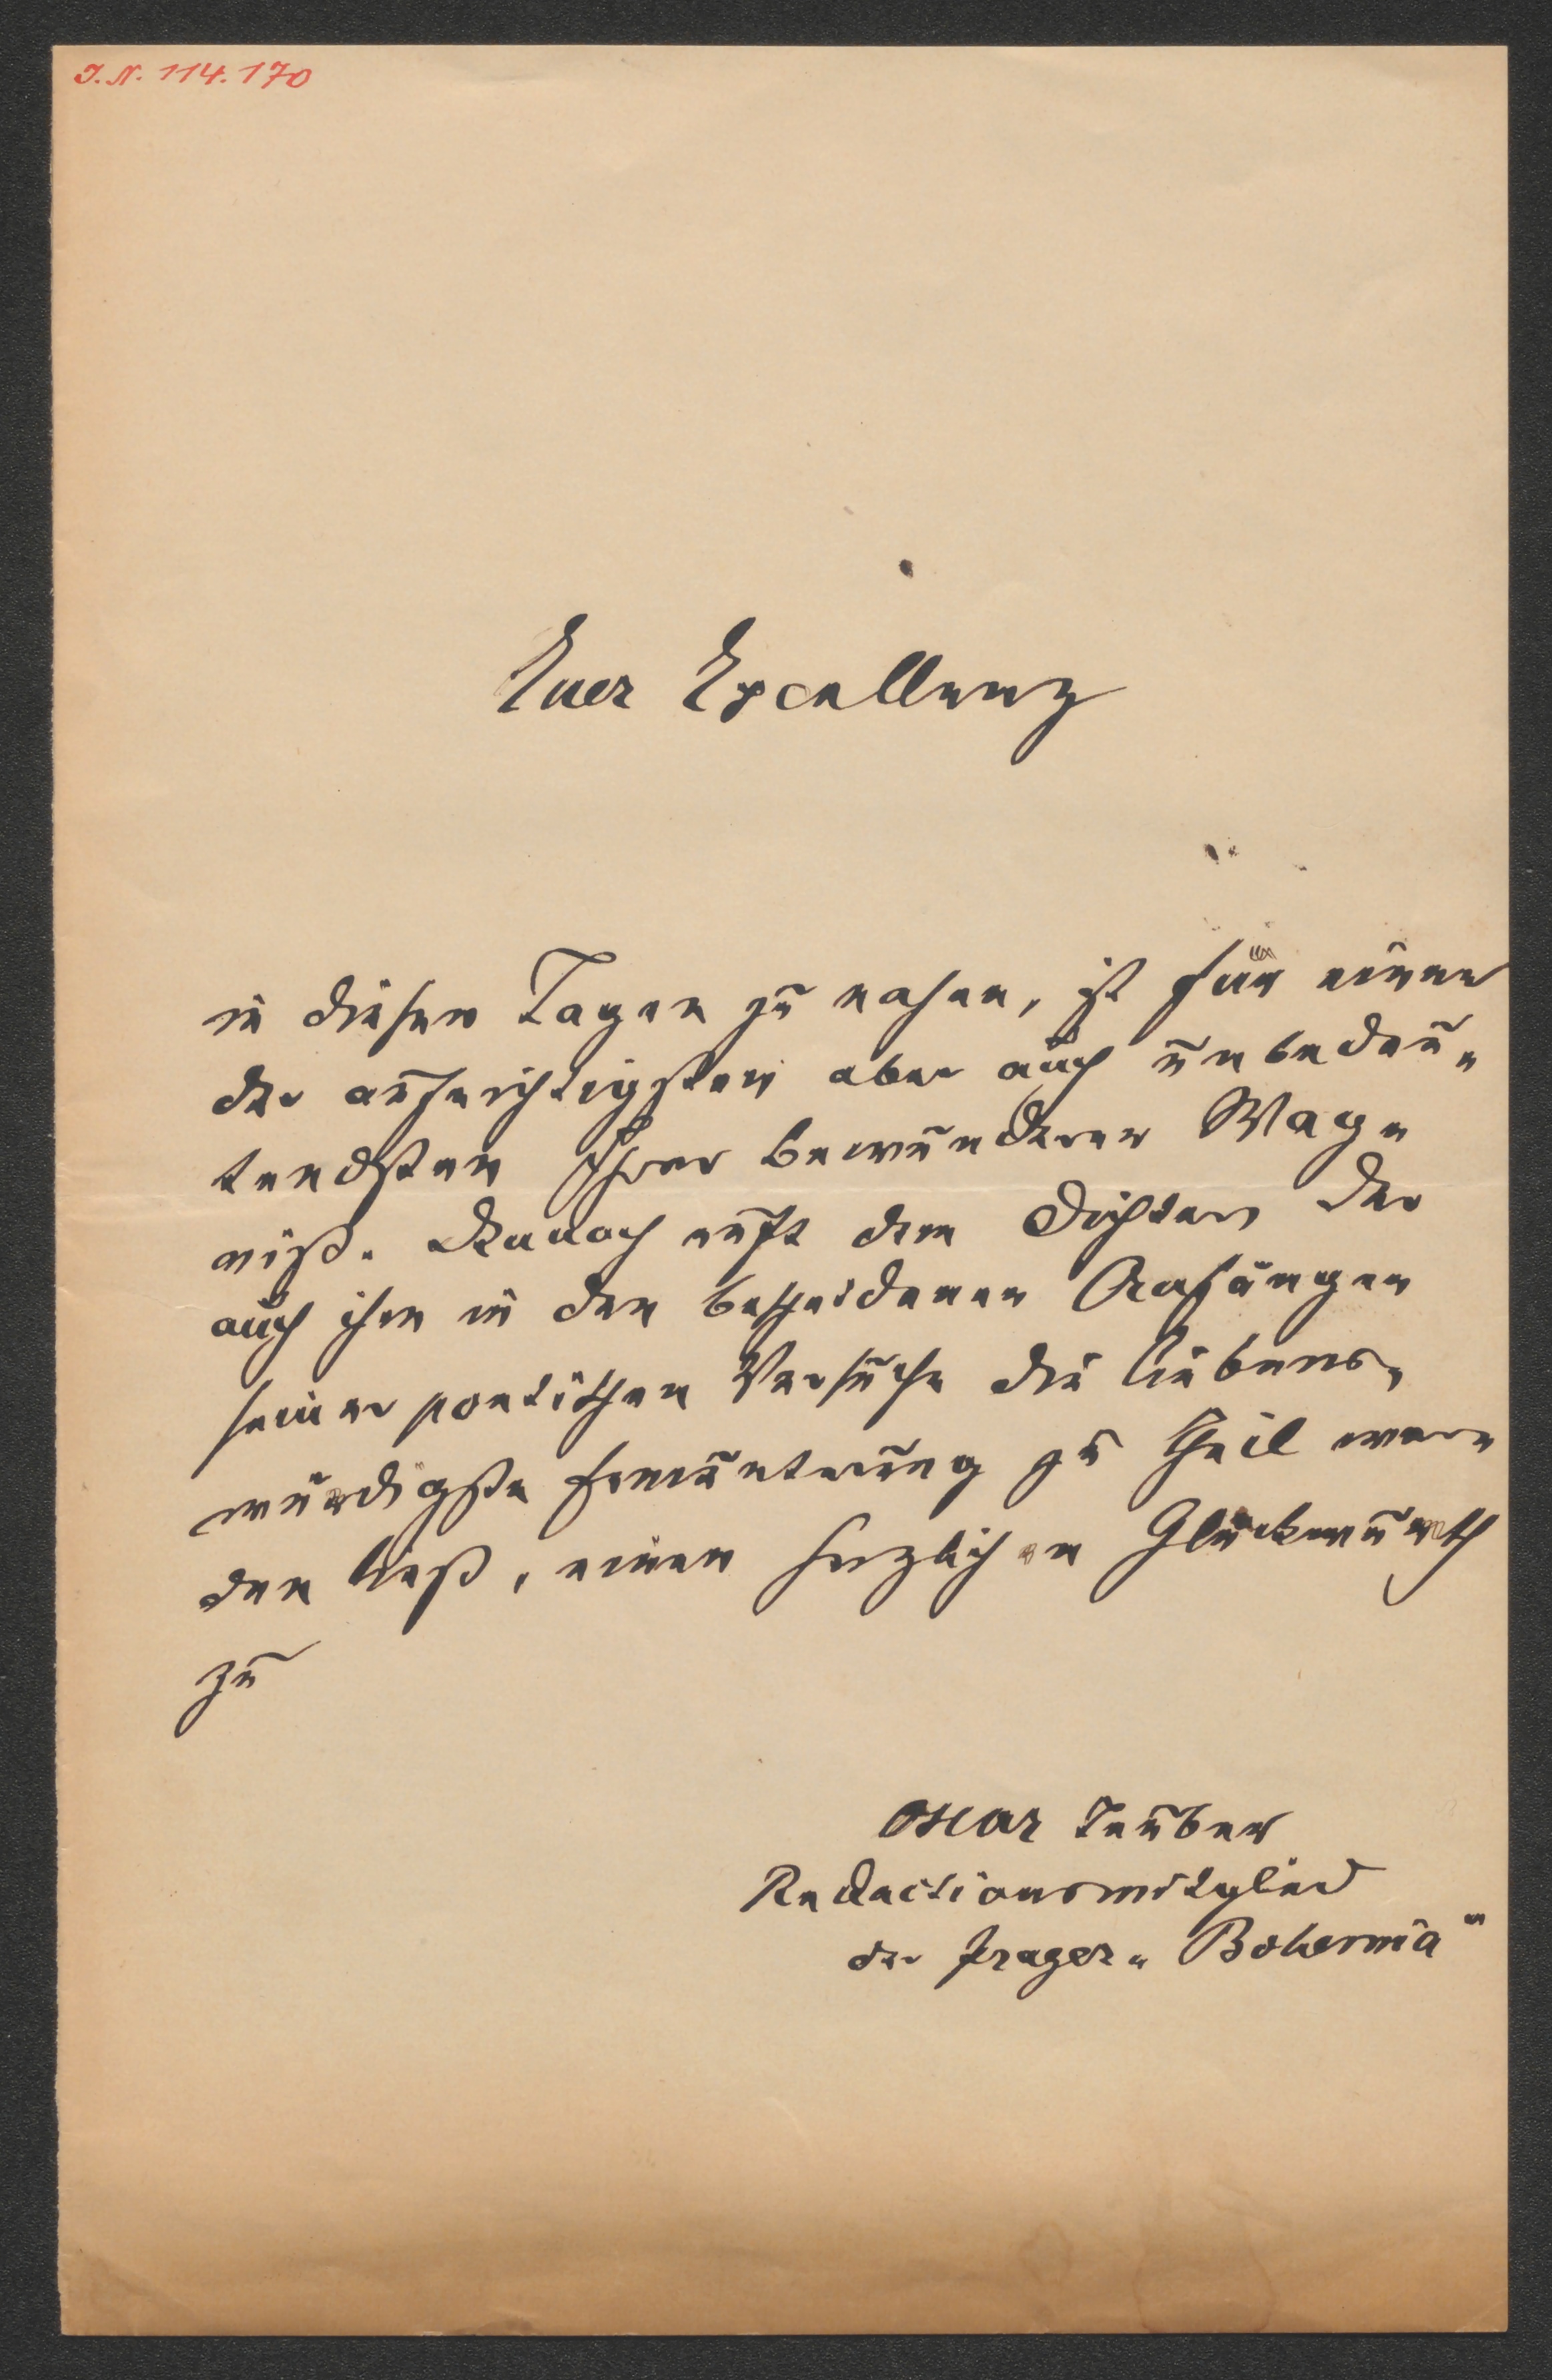 I. N. 114.170
Euer Excellenz
in diesen Tagen zu nahen, ist für einen
der aufrichtigsten aber auch unbedeu„
tendsten Ihrer Bewunderer Wag„
niß. Dennoch ruft dem Dichter, der
auch ihm in den bescheidenen Anfängen
seiner poetischen Versuche die liebens„
würdigste Ermunterung zu theil wer„
den ließ, einen herzlichen Glückwunsch
zu
Oscar Teuber
Redactionsmitglied
der Prager „Bohemia"